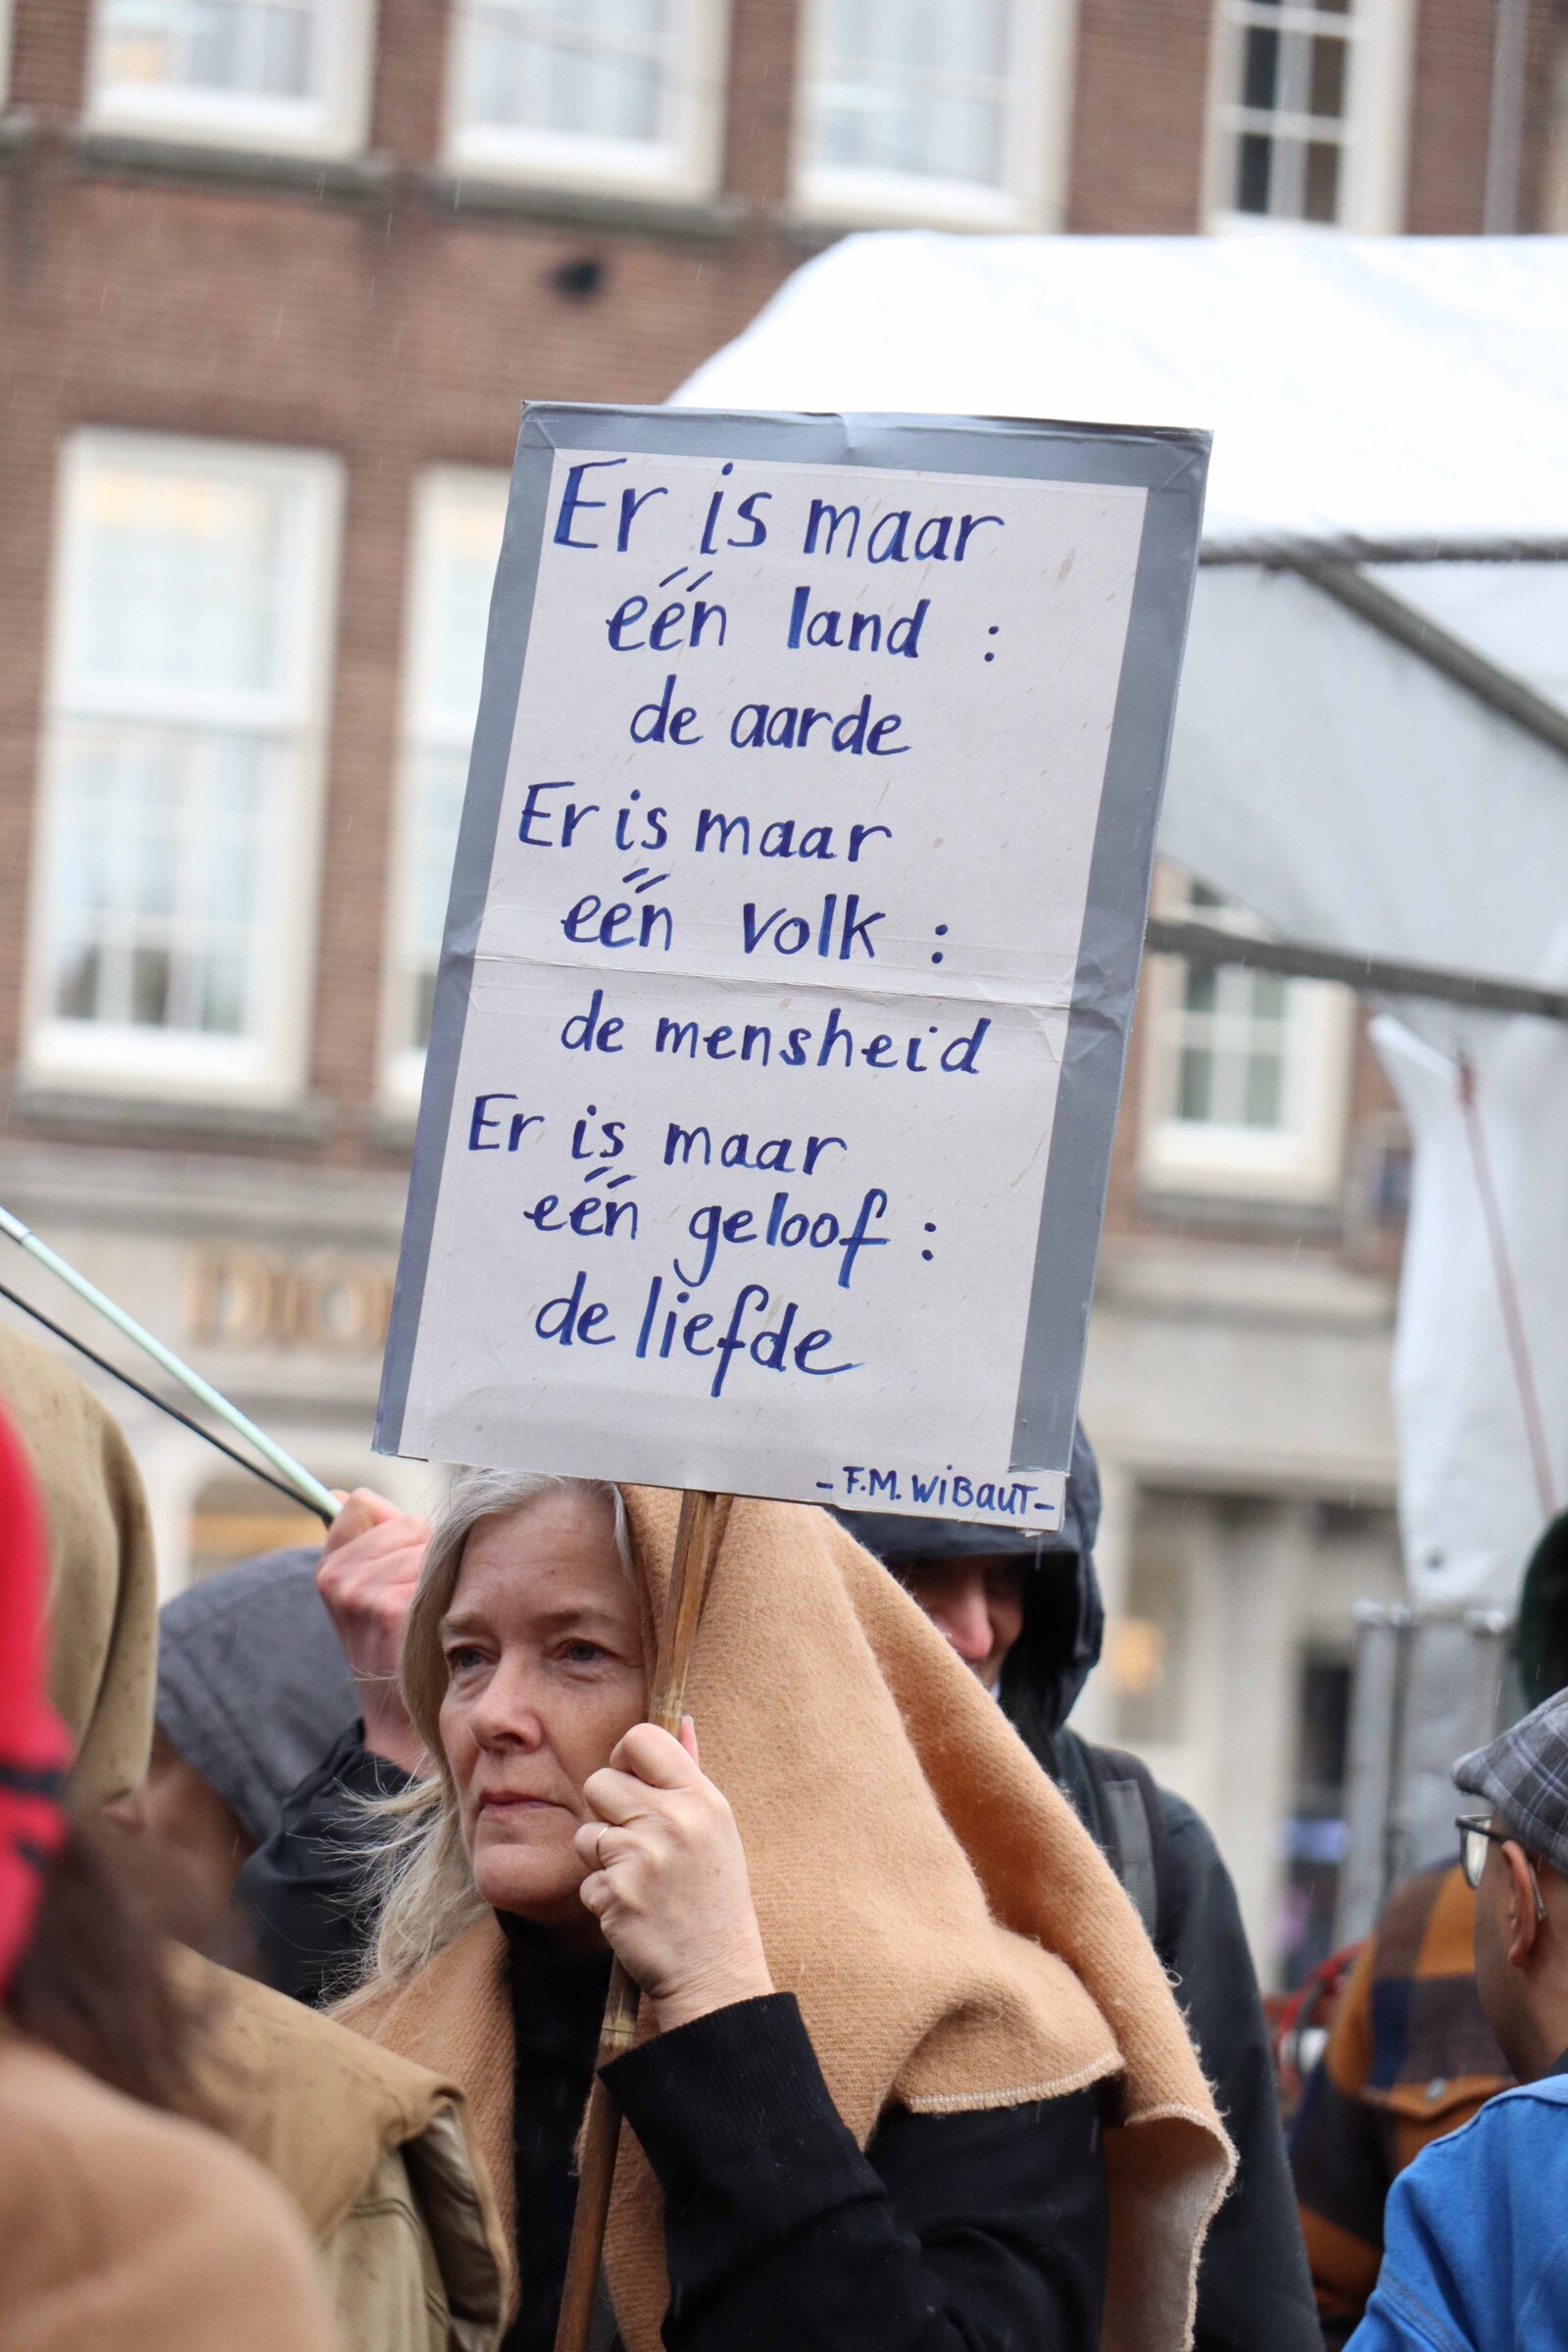 Er is maar
één land :
de aarde
Er is maar
één volk :
de mensheid
Er is maar
één geloof :
de liefde
- F.M. WiBauT-
DIOR